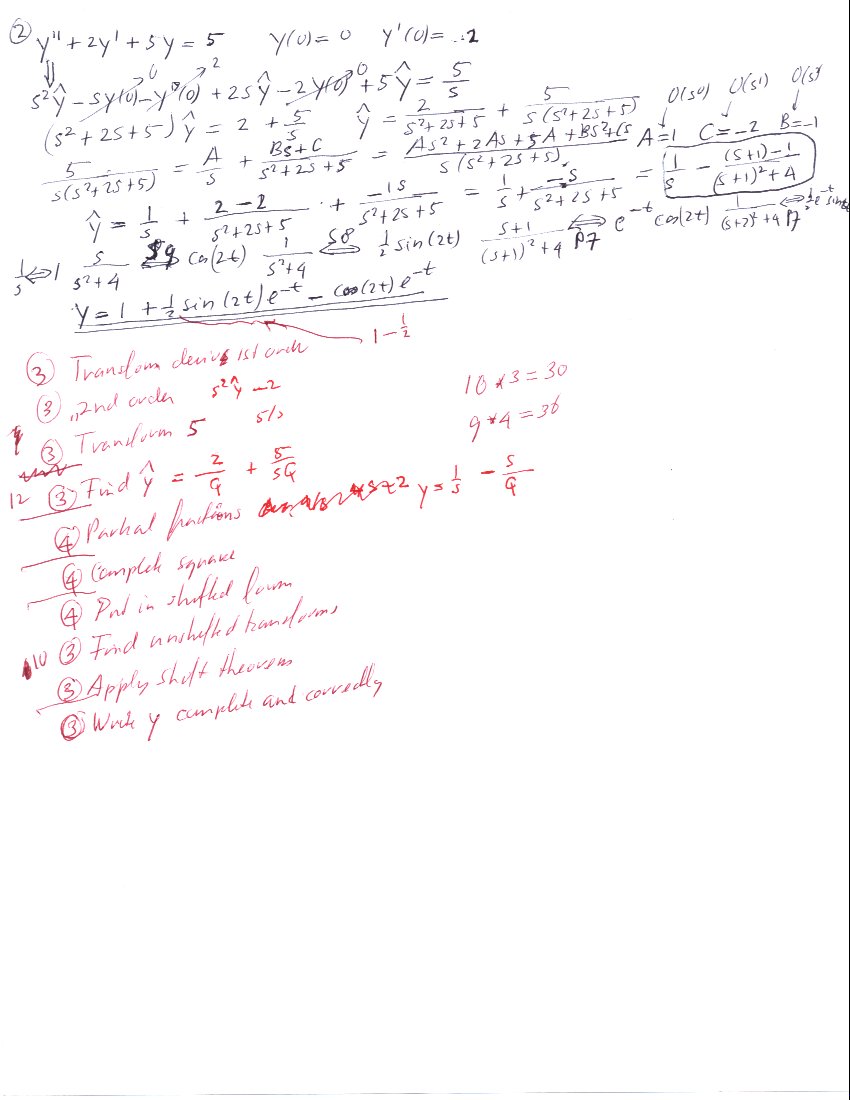 ② y'' + 2y' + 5y = 5 y(0) = 0 y'(0) = 2
⇓
s²ŷ - sy(0) - y'(0) + 2sŷ - 2y(0) + 5ŷ = 5/s
0 2 0
(s² + 2s + 5) ŷ = 2 + 5/s ŷ = 2/(s² + 2s + 5) + 5/(s(s² + 2s + 5)) O(s⁰) O(s¹) O(s²)
5/(s(s² + 2s + 5)) = A/s + (Bs + C)/(s² + 2s + 5) = (As² + 2As + 5A + Bs² + Cs)/(s(s² + 2s + 5)) A = 1 C = -2 B = -1
ŷ = 1/s + (2 - 2)/(s² + 2s + 5) + -1s/(s² + 2s + 5) = 1/s + -s/(s² + 2s + 5) = 1/s - ((s+1) - 1)/((s+1)² + 4)
1/s ⇔ 1 s/(s² + 4) ⇔ cos(2t) 1/(s² + 4) S8 ⇔ ½ sin(2t) (s+1)/((s+1)² + 4) ⇔ P7 e^-t cos(2t) 1/((s+2)² + 4) ⇔ P7 ½e^-t sin2t
y = 1 + ½ sin(2t) e^-t - cos(2t) e^-t
1 - ½
③ Transform deriv 1st order
③ ,, 2nd order s²ŷ - 2
③ Transform 5 5/s
9
12 ③ Find ŷ = 2/Q + 5/sQ
④ Partial fractions y = 1/s - s/Q
④ Complete square
④ Put in shifted form
10 ③ Find unshifted transforms
③ Apply shift theorem
③ Write y complete and correctly
10 * 3 = 30
9 * 4 = 36